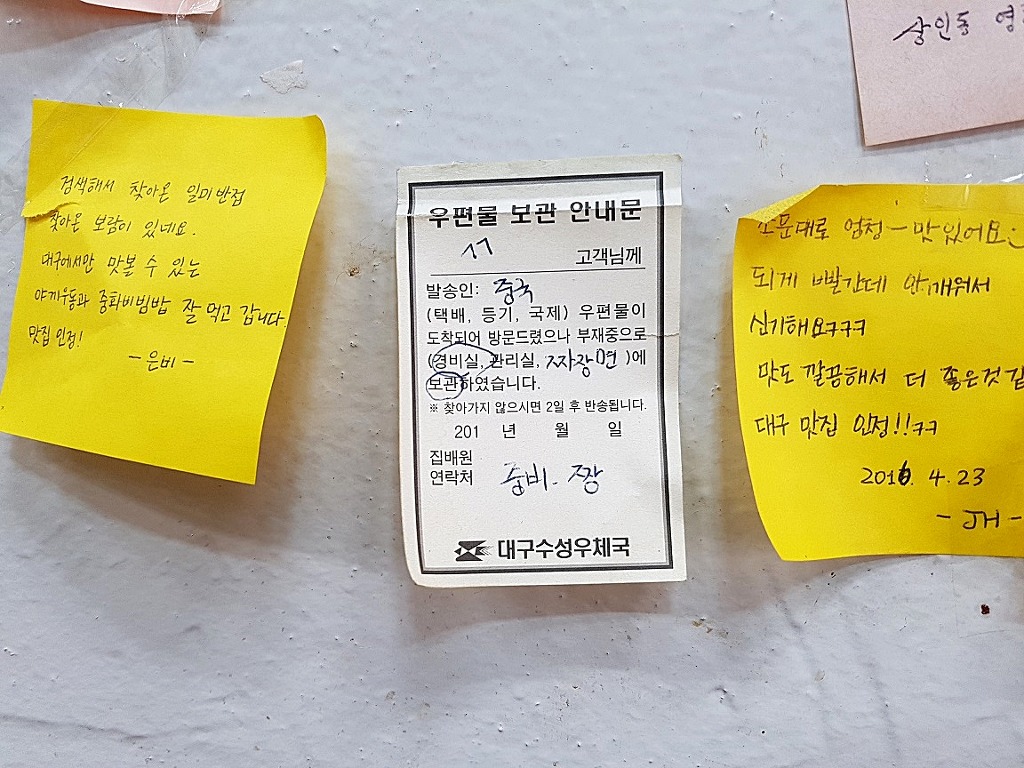 상인동
검색해서 찾아온 일미반점
찾아온 보람이 있네요.
대구에서만 맛볼 수 있는
야끼우동과 중화비빔밥 잘 먹고 갑니다.
맛집 인정!
- 은비 -
우편물 보관 안내문
서 고객님께
발송인: 중국
(택배, 등기, 국제) 우편물이
도착되어 방문드렸으나 부재중으로
(경비실, 관리실, 짜장면)에
보관하였습니다.
※ 찾아가지 않으시면 2일 후 반송됩니다.
201 년 월 일
집배원
연락처 중비. 짱
대구수성우체국
소문대로 엄청 ㅡ 맛있어요
되게 빨간데 안매워서
신기해요ㅋㅋㅋ
맛도 깔끔해서 더 좋은것
대구 맛집 인정!!ㅋㅋ
2016. 4. 23
- JH -